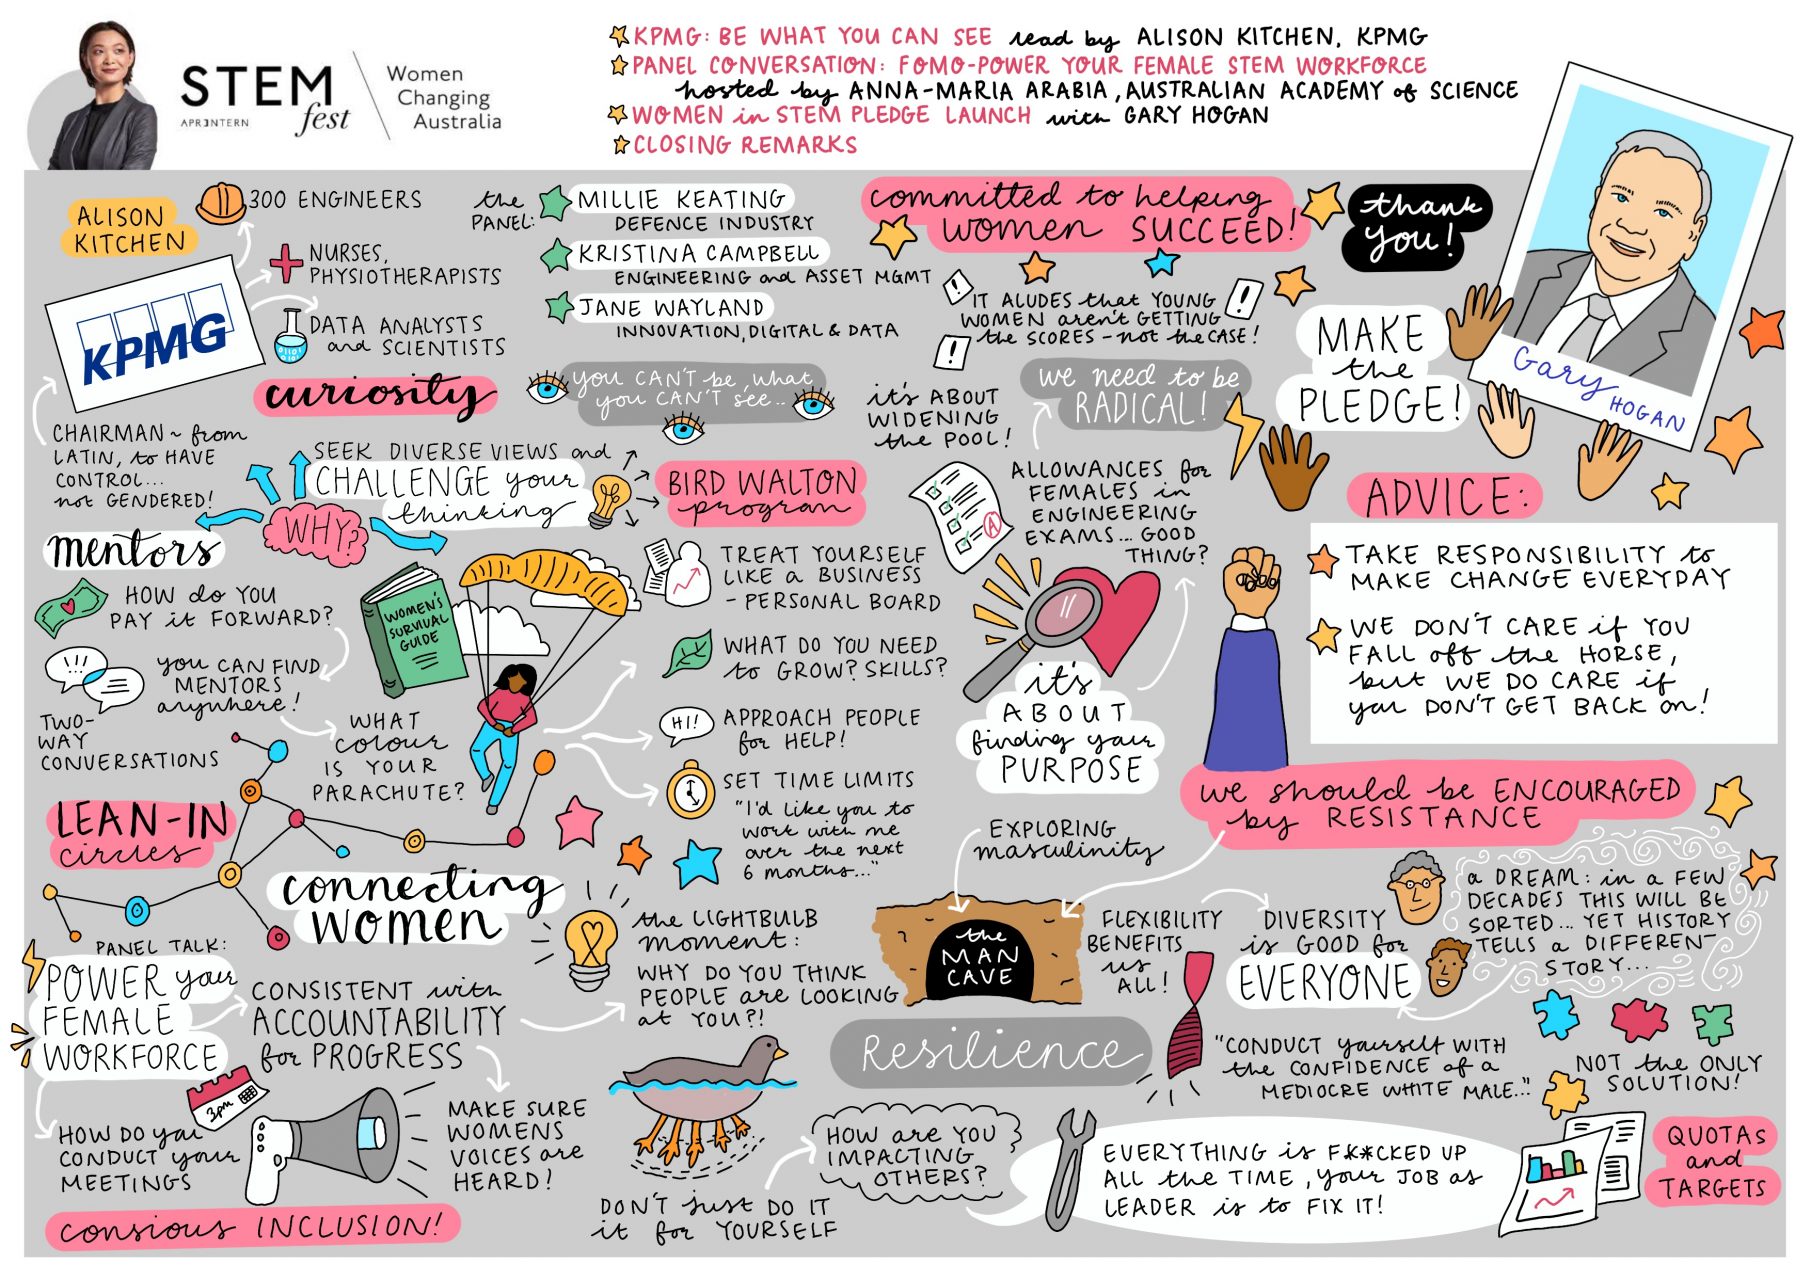 STEM
APR3NTERN
fest
Women
Changing
Australia
KPMG: BE WHAT YOU CAN SEE read by ALISON KITCHEN, KPMG
PANEL CONVERSATION: FOMO-POWER YOUR FEMALE STEM WORKFORCE
hosted by ANNA-MARIA ARABIA, AUSTRALIAN ACADEMY of SCIENCE
WOMEN in STEM PLEDGE LAUNCH with GARY HOGAN
CLOSING REMARKS
ALISON
KITCHEN
300 ENGINEERS
NURSES,
PHYSIOTHERAPISTS
DATA ANALYSTS
and SCIENTISTS
KPMG
CHAIRMAN ~ from
LATIN, to HAVE
CONTROL...
not GENDERED!
the
PANEL:
MILLIE KEATING
DEFENCE INDUSTRY
KRISTINA CAMPBELL
ENGINEERING and ASSET MGMT
JANE WAYLAND
INNOVATION, DIGITAL & DATA
curiosity
you CAN'T be, what
you CAN'T see...
SEEK DIVERSE VIEWS and
CHALLENGE your
thinking
WHY?
BIRD WALTON
program
mentors
HOW do YOU
PAY it FORWARD?
you CAN FIND
MENTORS
anywhere!
TWO-
WAY
CONVERSATIONS
WOMEN'S
SURVIVAL
GUIDE
WHAT
colour
IS YOUR
PARACHUTE?
TREAT YOURSELF
LIKE a BUSINESS
- PERSONAL BOARD
WHAT DO YOU NEED
to GROW? SKILLS?
HI!
APPROACH PEOPLE
for HELP!
SET TIME LIMITS
"I'd like you to
work with me
over the next
6 months..."
LEAN-IN
circles
connecting
WOMEN
PANEL TALK:
POWER your
FEMALE
WORKFORCE
CONSISTENT with
ACCOUNTABILITY
for PROGRESS
3pm
HOW DO you
CONDUCT your
MEETINGS
MAKE SURE
WOMENS
VOICES are
HEARD!
consious INCLUSION!
the LIGHTBULB
moment:
WHY DO YOU THINK
PEOPLE are LOOKING
at YOU?!
DON'T just DO IT
it for YOURSELF
HOW are YOU
IMPACTING
OTHERS?
committed to helping
women SUCCEED!
thank
you!
IT ALUDES that YOUNG
WOMEN aren't GETTING
the SCORES - not the CASE!
it's ABOUT
WIDENING
the POOL!
we need to be
RADICAL!
A
ALLOWANCES for
FEMALES in
ENGINEERING
EXAMS... GOOD
THING?
it's
ABOUT
finding your
PURPOSE
MAKE
the
PLEDGE!
Gary
HOGAN
ADVICE:
TAKE RESPONSIBILITY to
MAKE CHANGE EVERYDAY
WE DON'T CARE if YOU
FALL off the HORSE,
but WE DO CARE if
you DON'T GET BACK on!
we should be ENCOURAGED
by RESISTANCE
EXPLORING
masculinity
the
MAN
CAVE
Resilience
FLEXIBILITY
BENEFITS
us
ALL!
DIVERSITY
is GOOD for
EVERYONE
a DREAM: in a FEW
DECADES THIS WILL BE
SORTED... YET HISTORY
TELLS a DIFFERENT
STORY...
"CONDUCT yourself WITH
the CONFIDENCE of a
MEDIOCRE WHITE MALE..."
NOT the ONLY
SOLUTION!
EVERYTHING is F**CKED UP
ALL the TIME, your JOB as
LEADER is to FIX IT!
QUOTAs
and
TARGETS